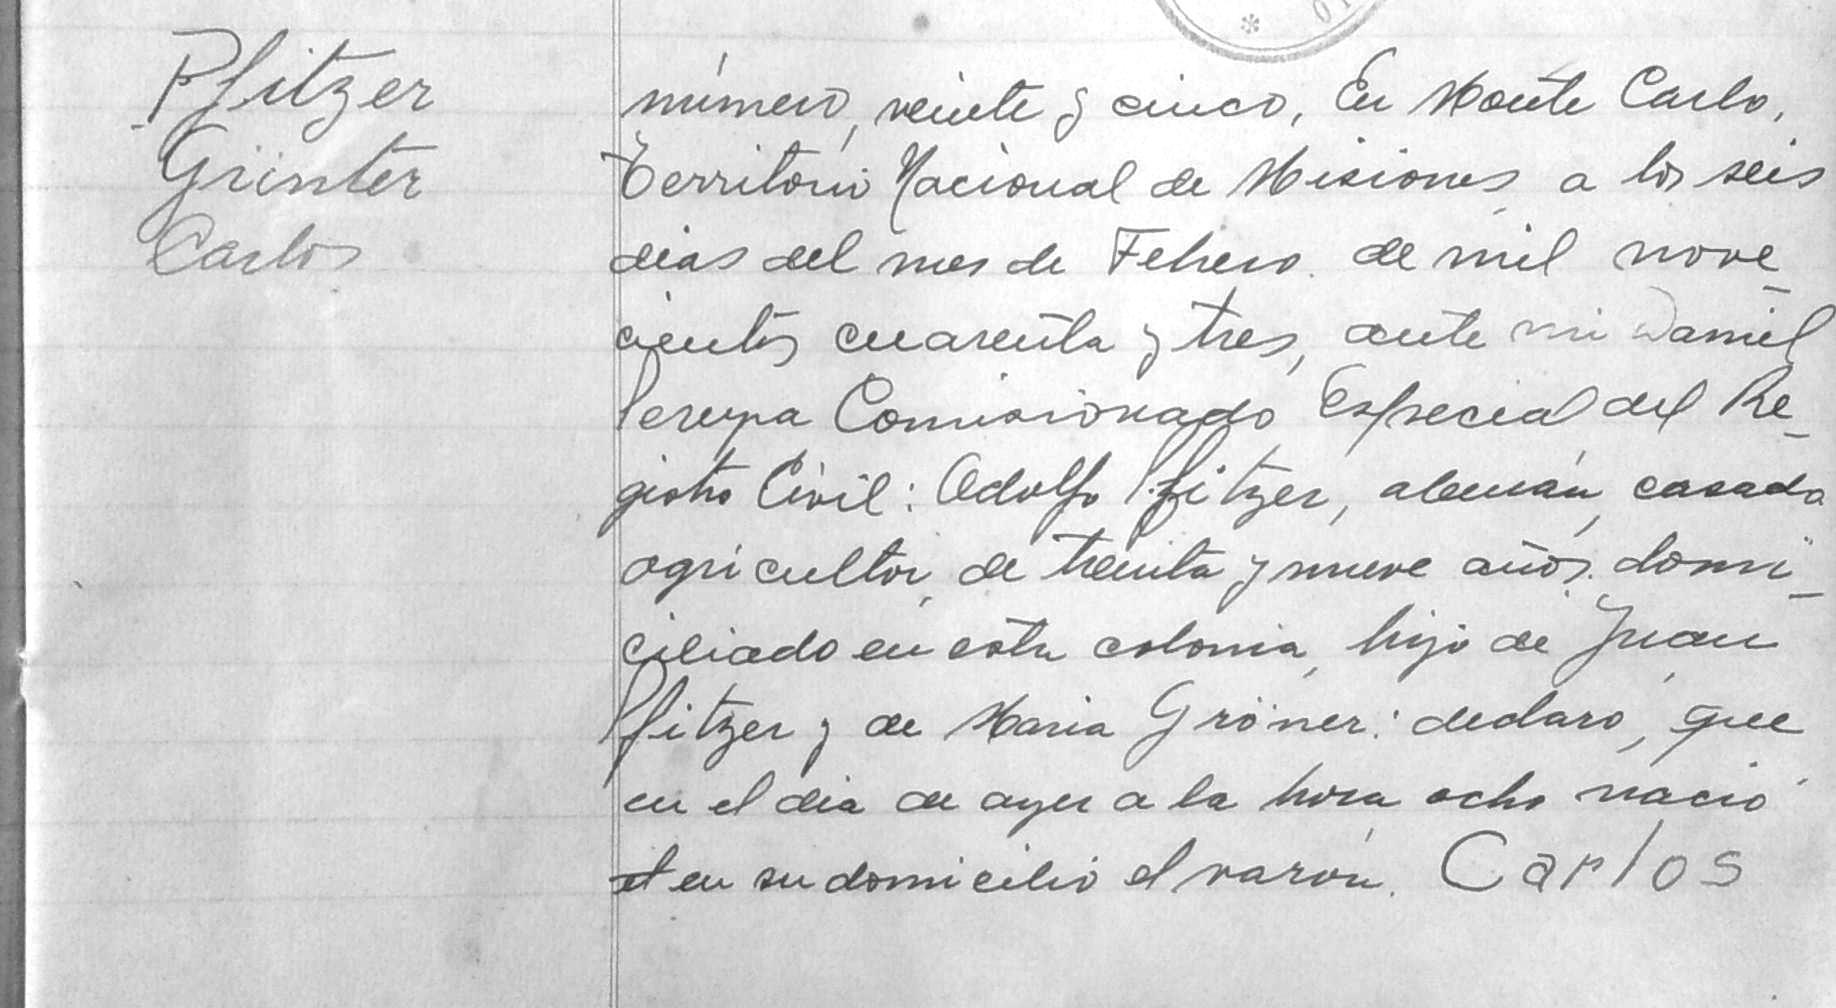 Pfitzer
Günter
Carlos
número, veinte y cinco, En Monte Carlo,
Territorio Nacional de Misiones, a los seis
dias del mes de Febrero. de mil nove_
cientos cuarenta y tres, ante mi Daniel
Pereyra Comisionado Especial del Re_
gistro Civil: Adolfo Pfitzer, alemán, casado
agricultor, de treinta y nueve años. domi_
ciliado en esta colonia, hijo de Juan
Pfitzer y de Maria Gröner: declaró, que
en el dia de ayer a la hora ocho nació
el en su domicilio el varón. Carlos